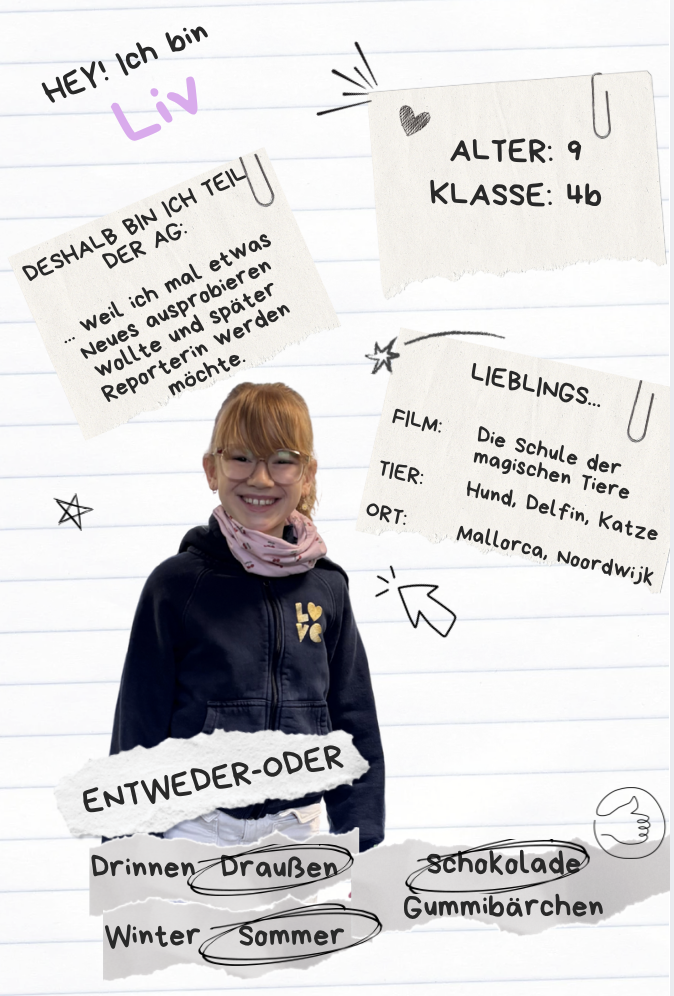 HEY! Ich bin
Liv
ALTER: 9
KLASSE: 4b
DESHALB BIN ICH TEIL
DER AG:
... weil ich mal etwas
Neues ausprobieren
wollte und später
Reporterin werden
möchte.
LIEBLINGS...
FILM: Die Schule der
magischen Tiere
TIER: Hund, Delfin, Katze
ORT: Mallorca, Noordwijk
LO
VE
ENTWEDER-ODER
Drinnen Draußen
Winter Sommer
Schokolade
Gummibärchen